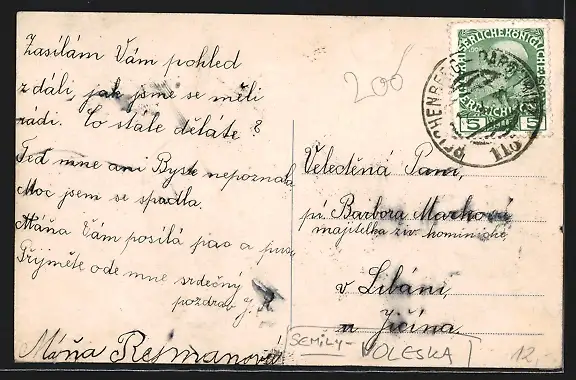 Zasílám Vám pohled
z dáli, jak jsme se měli
rádi. Co stále děláte?
Teď mne ani Byste nepoznala
Moc jsem se spadla.
Máňa Vám posílá pac a pusu
Přijměte ode mne srdečný
pozdrav J. R.
Máňa Rejmanová
200
KAISERLICHE KÖNIGLICHE
5 5
REICHENBERG
Veleděná Paní,
pí Barbora Marková
majitelka živ. kominické
v Libáni,
u Jičína
SEMILY-
OLEŠKA
12,